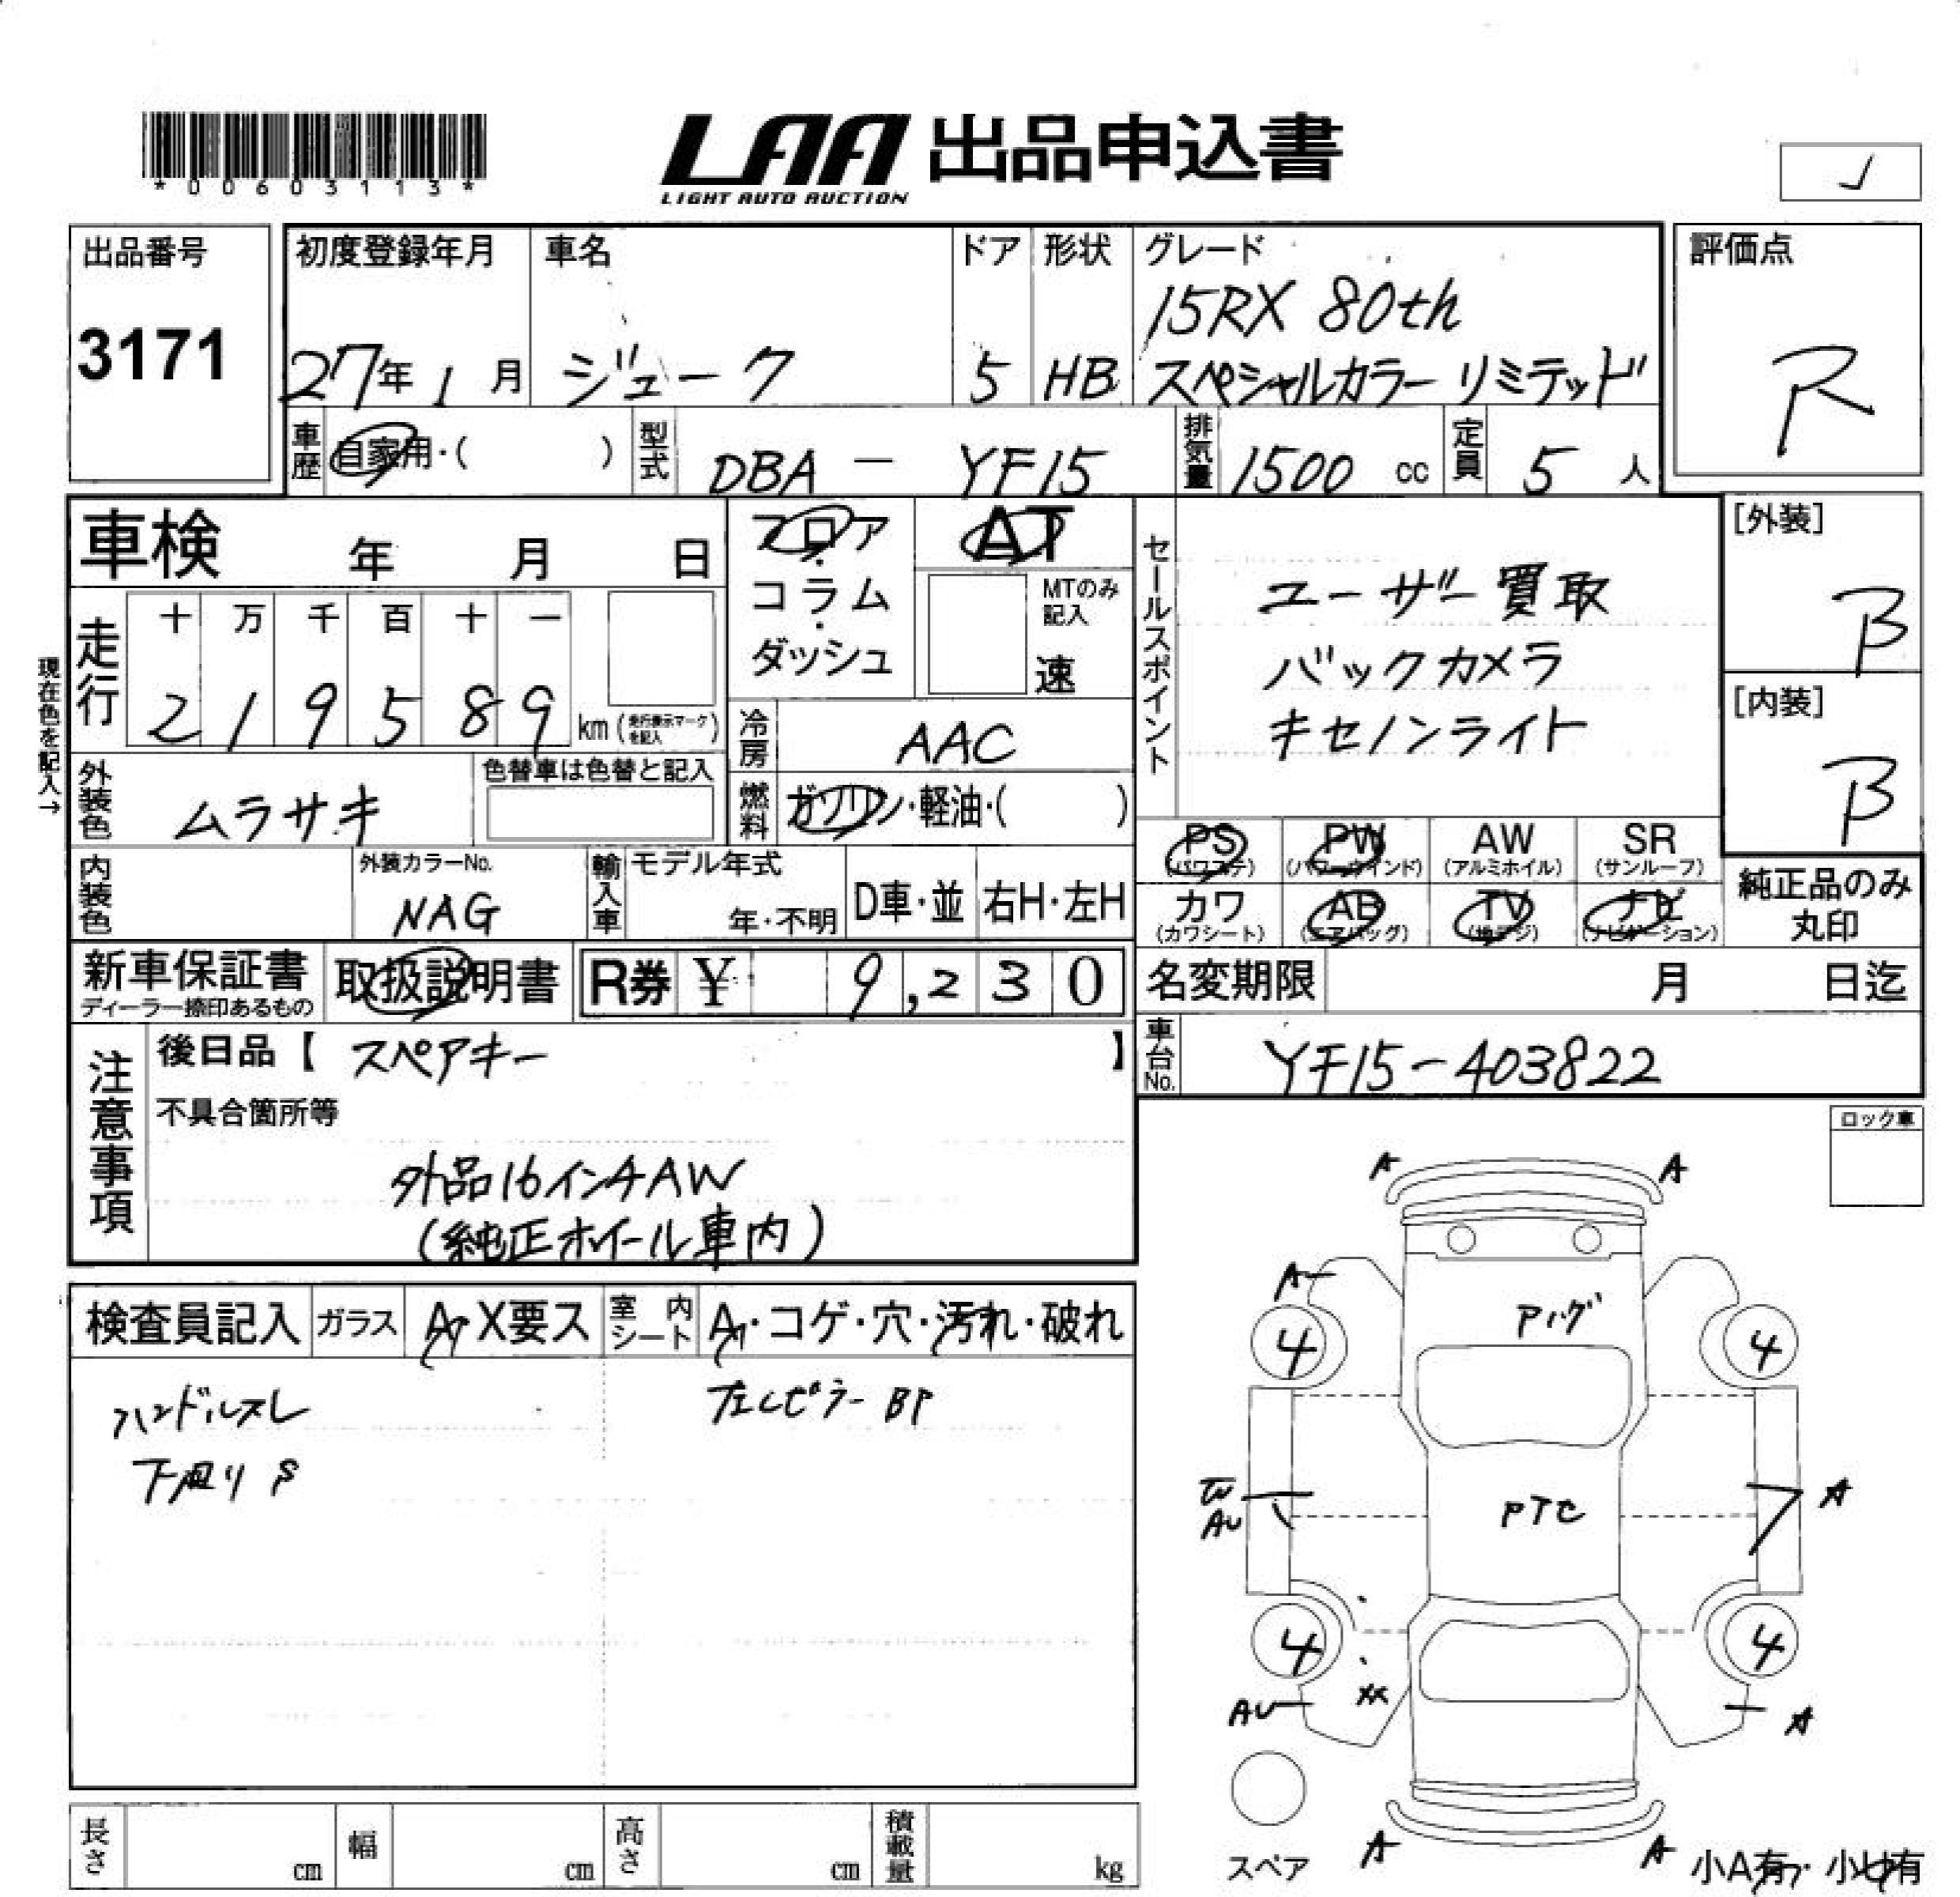 *00603113*
LAA 出品申込書
LIGHT AUTO AUCTION
出品番号
3171
初度登録年月
27年1月
車名
ジューク
ドア
5
形状
HB
グレード
15RX 80th
スペシャルカラーリミテッド
評価点
R
車歴
自家用・( )
型式
DBA - YF15
排気量
1500 cc
定員
5 人
車検 年 月 日
フロア
・
コラム
・
ダッシュ
AT
MTのみ
記入
速
セールスポイント
ユーザー買取
バックカメラ
キセノンライト
[外装]
B
[内装]
B
現在色を記入→
走行
十 万 千 百 十 一
2 1 9 5 8 9 km (走行表示マークを記入)
冷房
AAC
外装色
ムラサキ
色替車は色替と記入
燃料
ガソリン・軽油・( )
PS
(パワステ)
PW
(パワーウインド)
AW
(アルミホイル)
SR
(サンルーフ)
カワ
(カワシート)
AB
(エアバッグ)
TV
(地デジ)
ナビ
(ナビゲーション)
純正品のみ
丸印
内装色
外装カラーNo.
NAG
輸入車
モデル年式
年・不明
D車・並
右H・左H
新車保証書
ディーラー捺印あるもの
取扱説明書
R券 ¥ 9,230
名変期限 月 日迄
車台No.
YF15-403822
注意事項
後日品【 スペアキー 】
不具合箇所等
外品16インチAW
(純正ホイール車内)
ロック車
検査員記入
ガラス
A・X要ス
室内
シート
A・コゲ・穴・汚れ・破れ
ハンドルスレ
下廻りS
左Cピラー BP
A A
A
4 4
PTC
AU
A
4 4
AU
XX
A
A A
スペア
小A有・小U有
長さ cm
幅 cm
高さ cm
積載量 kg